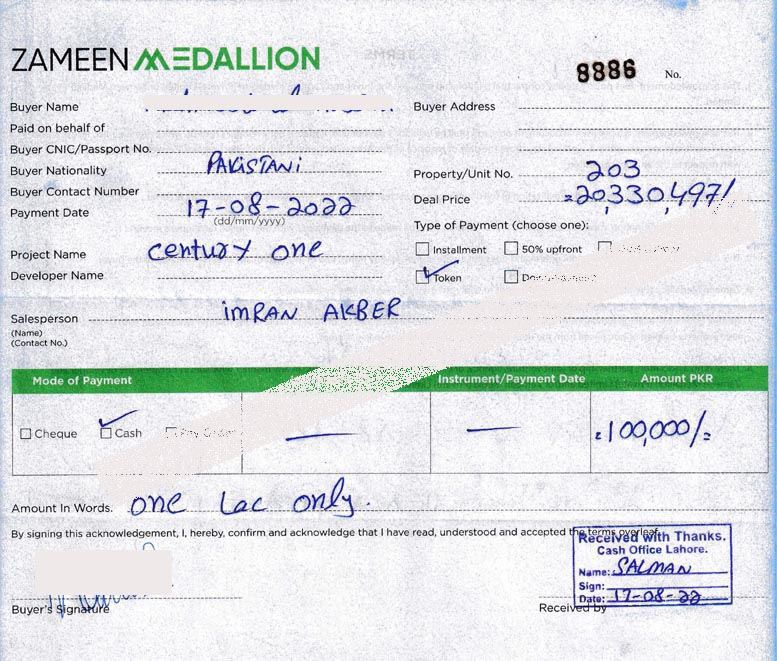 ZAMEEN MEDALLION
8886 No.
Buyer Name
Buyer Address
Paid on behalf of
Buyer CNIC/Passport No.
Buyer Nationality PAKISTANi
Property/Unit No. 203
Buyer Contact Number
Deal Price =20330,497/
Payment Date 17-08-2022
(dd/mm/yyyy)
Type of Payment (choose one):
Project Name Century one
Installment 50% upfront
Developer Name
Token
Salesperson iMRAN AKBER
(Name)
(Contact No.)
Mode of Payment Instrument/Payment Date Amount PKR
Cheque Cash Pay Order
=100,000/=
Amount In Words. one Lac only.
By signing this acknowledgement, I, hereby, confirm and acknowledge that I have read, understood and accepted the terms overleaf.
Received with Thanks.
Cash Office Lahore.
Name: SALMAN
Sign:
Date: 17-08-22
Buyer's Signature
Received by